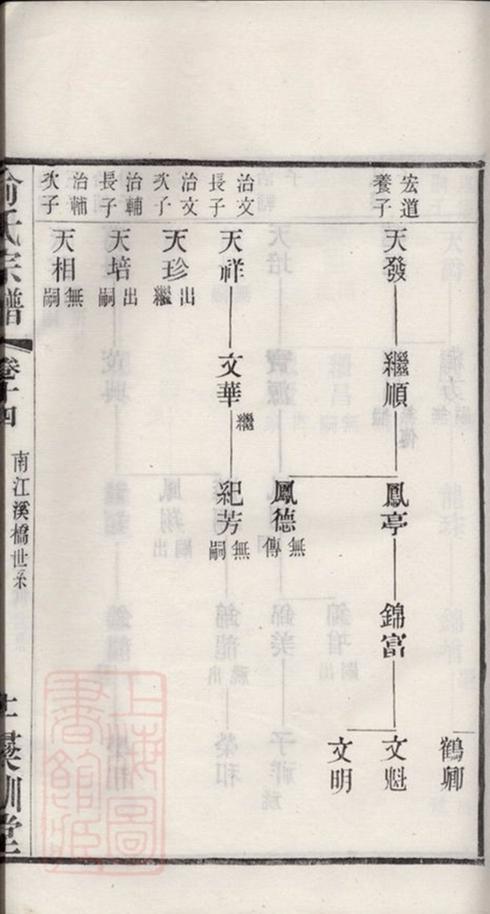 鶴卿
宏道
養子
天發
繼順
鳳亭
錦富
文魁
文明
鳳德
無
傳
治文
長子
天祥
文華
繼
紀芳
無
嗣
治文
次子
天珍
出
繼
治輔
長子
天培
出
嗣
治輔
次子
天相
無
嗣
俞氏宗譜
卷十四
南江溪橋世系
上海圖
書館藏